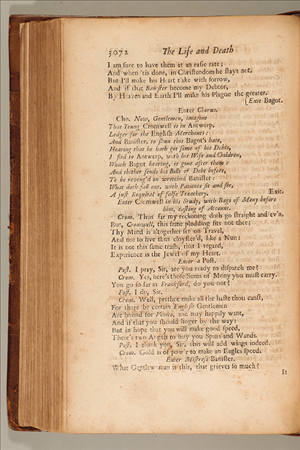 3072 The Life and Death
I am sure to have them at an easie rate;
And when 'tis done, in Christendom he stays not,
But I'll make his Heart t'ake with sorrow,
And if that Banister become my Debtor,
By Heaven and Earth I'll make his Plague the greater.
[Exit Bagot.
Enter Chorus.
Cho. Now, Gentlemen, imagine
That Young Cromwell is in Antwerp,
Ledger for the English Merchants:
And Banister, to shun this Bagot's hate,
Hearing that he hath got some of his Debts,
Is fled to Antwerp, with his Wife and Children,
Which Bagot hearing, is gone after them:
And thither sends his Bills of Debt before,
To be reveng'd on wretched Banister:
What doth fall out, with Patience sit and see,
A just Requital of false Treachery. Exit.
Enter Cromwell in his Study, with Bags of Mony before
him, casting of Account.
Crom. Thus far my reckoning doth go straight and ev'n,
But, Cromwell, this same plodding fits not thee:
Thy Mind is altogether set on Travel,
And not to live thus cloyster'd, like a Nun:
It is not this same trash, that I regard,
Experience is the Jewel of my Heart.
Enter a Post.
Post. I pray, Sir, are you ready to dispatch me?
Crom. Yes, here's those Sums of Mony you must carry.
You go so far as Frankford, do you not?
Post. I do, Sir.
Crom. Well, prethee make all the haste thou canst,
For there be certain English Gentlemen
Are bound for Venice, and may happily want,
And if that you should linger by the way:
But in hope that you will make good speed,
There's two Angels to buy you Spurs and Wands.
Post. I thank you, Sir, this will add wings indeed.
Crom. Gold is of pow'r to make an Eagles speed.
Enter Mistress Banister.
What Gentlewoman is this, that grieves so much?
It